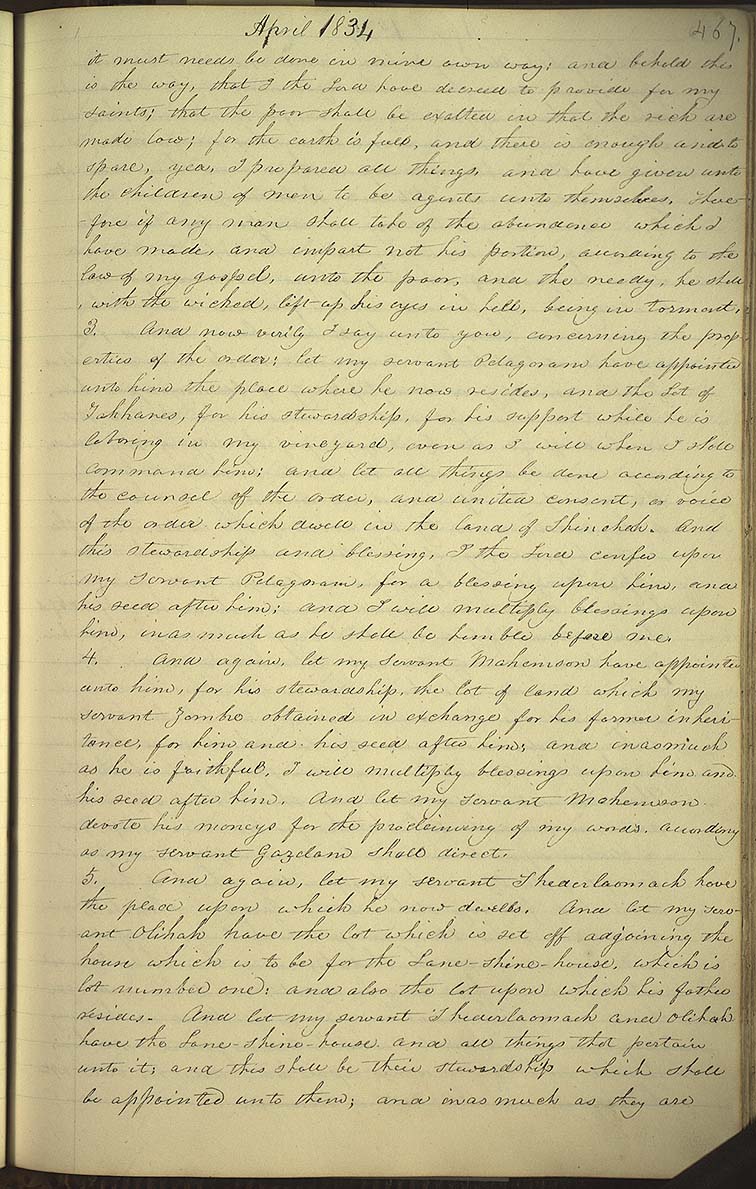 April 1834
467.
it must needs be done in mine own way; and behold this
is the way, that I the Lord have decreed to provide for my
saints; that the poor shall be exalted in that the rich are
made low; for the earth is full, and there is enough and to
spare, yea, I prepared all things, and have given unto
the children of men to be agents unto themselves. There-
-fore if any man shall take of the abundance which I
have made, and impart not his portion, according to the
law of my gospel, unto the poor, and the needy, he shall
, with the wicked, lift up his eyes in hell, being in torment.
3. And now verily I say unto you, concerning the prop-
erties of the order; let my servant Pelagoram have appointed
unto him the place where he now resides, and the Lot of
Tahhanes, for his stewardship, for his support while he is
laboring in my vineyard, even as I will when I shall
command him; and let all things be done according to
the counsel of the order, and united consent, or voice
of the order which dwell in the land of Shinehah. And
this stewardship and blessing, I the Lord confer upon
my servant Pelagoram, for a blessing upon him, and
his seed after him; and I will multiply blessings upon
him, inasmuch as he shall be humble before me.
4. And again, let my servant Mahemson have appointed
unto him, for his stewardship, the lot of land which my
servant Zombre obtained in exchange for his former inheri-
tance, for him and his seed after him; and inasmuch
as he is faithful, I will multiply blessings upon him and
his seed after him. And let my servant Mahemson
devote his moneys for the proclaiming of my words, according
as my servant Gazelam shall direct.
5. And again, let my servant Shederlaomach have
the place upon which he now dwells. And let my serv-
ant Olihah have the lot which is set off adjoining the
house which is to be for the Lane-shine-house, which is
lot number one; and also the lot upon which his father
resides. And let my servant Shederlaomach and Olihah
have the Lane-shine-house and all things that pertain
unto it; and this shall be their stewardship which shall
be appointed unto them; and inasmuch as they are